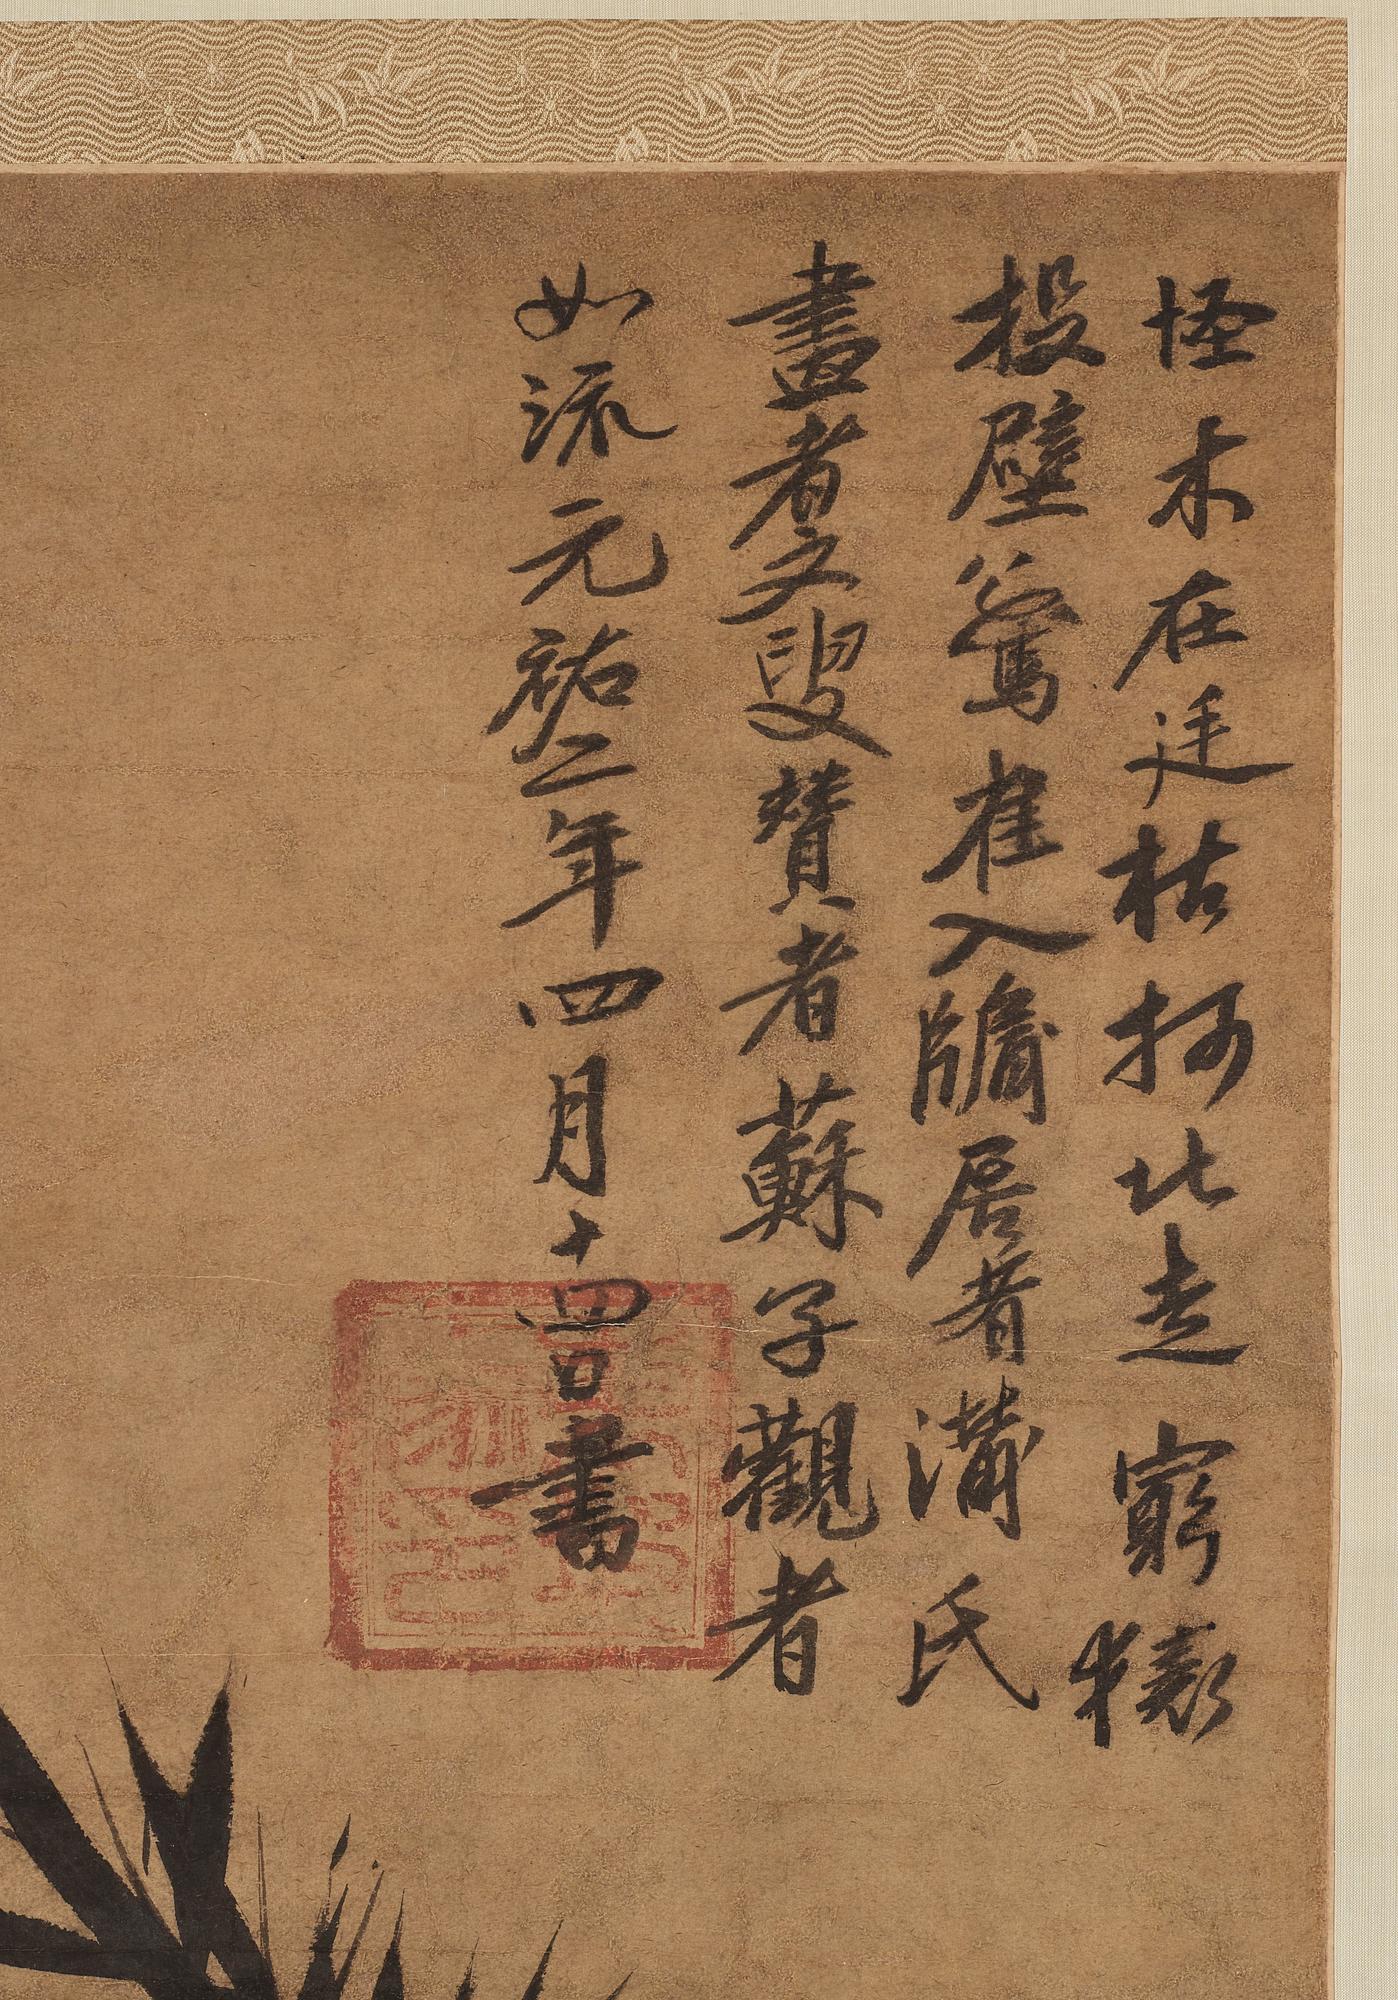 怪木在廷枯柯北走窮猿
投壁驚雀入牖居者蒲氏
畫者文叟贊者蘇子觀者
如流元祐三年四月十四日書